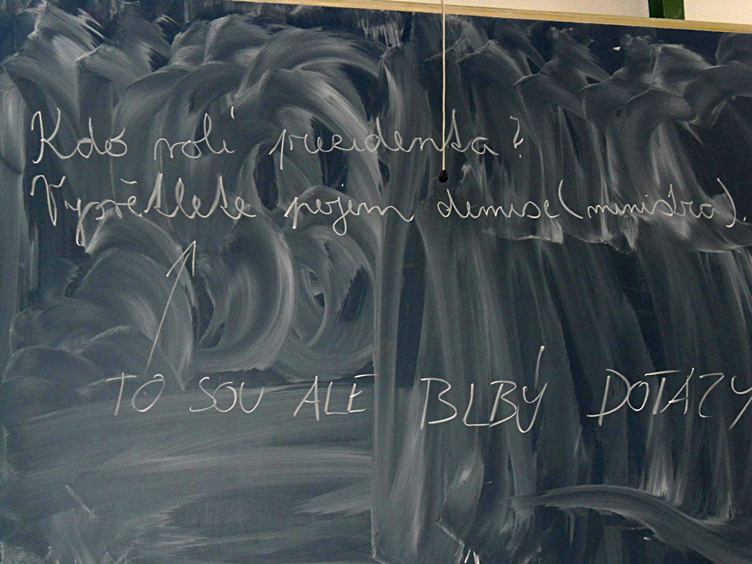 Kdo volí prezidenta?
Vysvětlete pojem demise (ministra).
TO SOU ALE BLBÝ DOTAZY